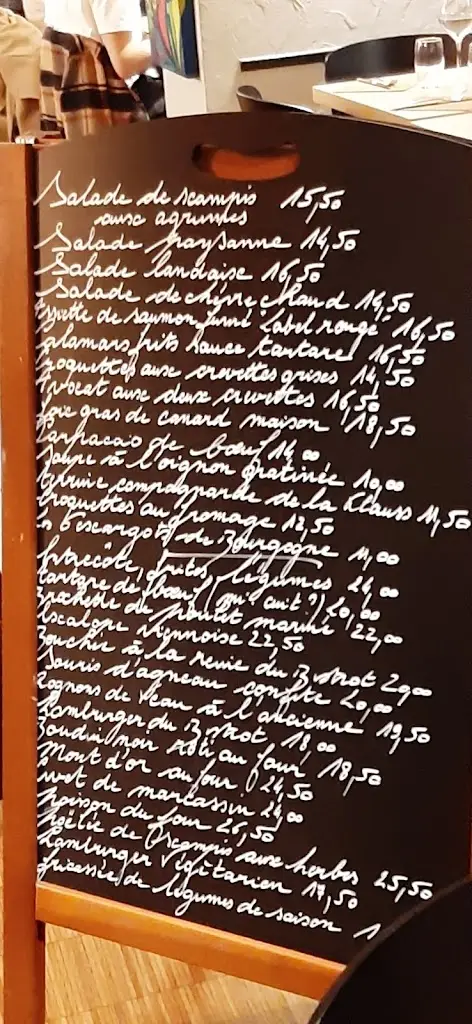 Salade de scampis 15,50
aux agrumes
Salade paysanne 14,50
Salade landaise 16,50
Salade de chèvre chaud 14,50
de saumon fumé "Label rouge" 16,50
calamars frits sauce tartare 16,50
croquettes aux crevettes grises 14,50
Avocat aux deux crevettes 16,50
foie gras de canard maison 18,50
Carpaccio de bœuf 14,00
soupe à l'oignon gratinée 10,00
terrine campagnarde de la Klauss 11,50
croquettes au fromage 12,50
escargots de Bourgogne 11,00
Entrecôte, frites, légumes 24,00
tartare de bœuf (mi-cuit?) 20,00
Brochette de poulet mariné 22,00
Escalope viennoise 22,50
Bouchée à la reine du Bistrot 20,00
Souris d'agneau confite 20,00
Rognons de veau à l'ancienne 19,50
Hamburger du Bistrot 18,00
Boudin noir rôti au four 18,50
Mont d'or au four 24,50
civet de marcassin 24,00
poisson du four 26,50
Poêlée de scampis aux herbes 25,50
Hamburger végétarien 17,50
fricassée de légumes de saison 1